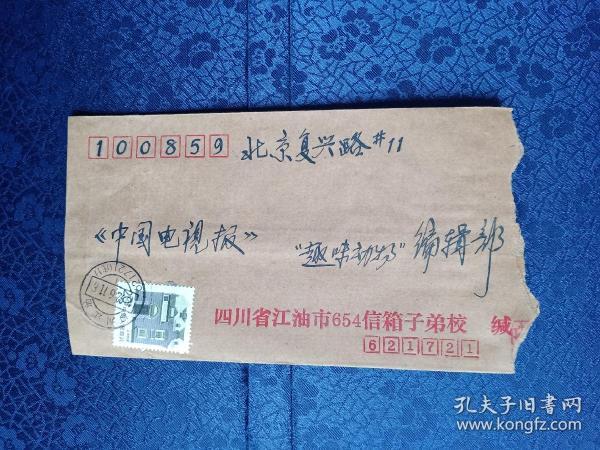 100859 北京复兴路#11
《中国电视报》 "趣味动物" 编辑部
四川省江油市654信箱子弟校 缄
621721
孔夫子旧书网
www.kongfz.com